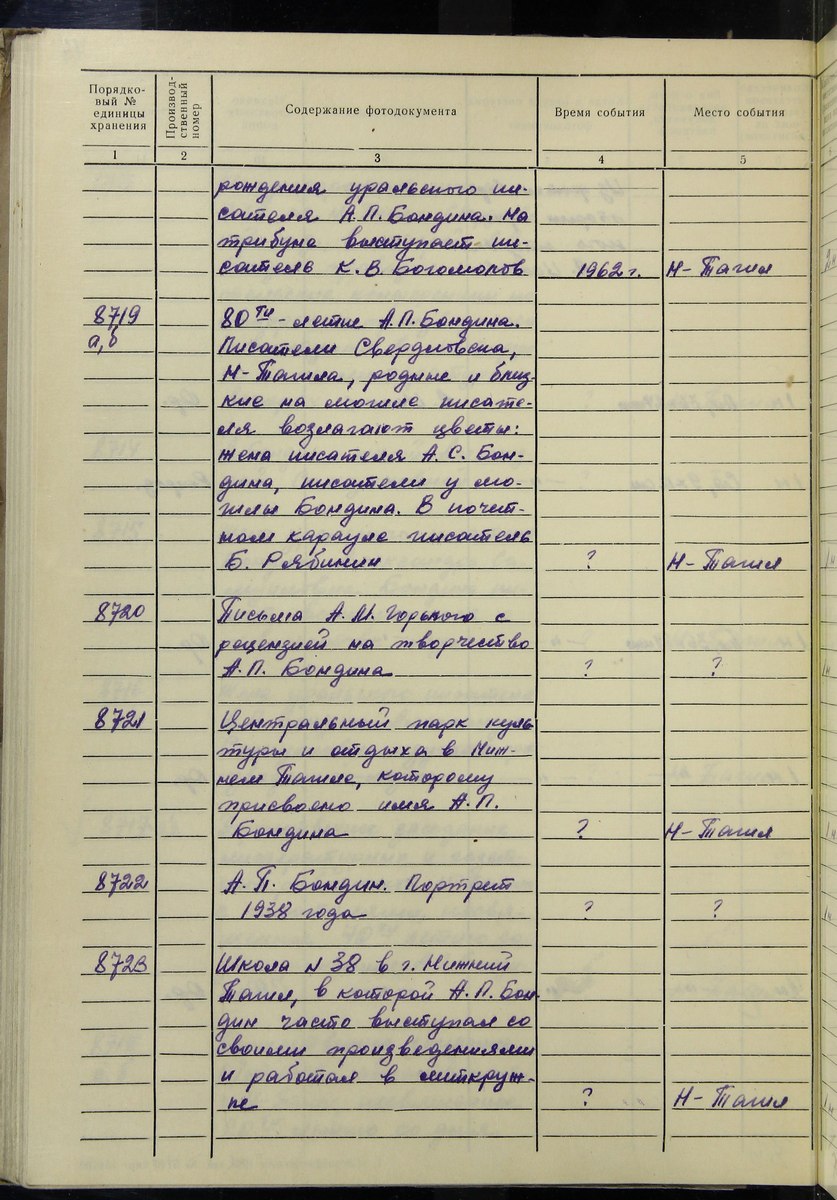 Порядко-
вый №
единицы
хранения
Производ-
ственный
номер
Содержание фотодокумента
Время события
Место события
1 2 3 4 5
рождения уральского пи-
сателя А.П. Бондина. На
трибуне выступает пи-
сатель К.В. Богомолов 1962 г. Н-Тагил
8719 80ти-летие А.П. Бондина.
а,б Писатели Свердловска,
Н-Тагила, родные и близ-
кие на могиле писате-
ля возлагают цветы:
жена писателя А.С. Бон-
дина, писатели у мо-
гилы Бондина. В почет-
ном карауле писатель
Б. Рябинин ? Н-Тагил
8720 Письма А.М. Горького с
рецензией на творчество
А.П. Бондина ? ?
8721 Центральный парк куль
туры и отдыха в Ниж-
нем Тагиле, которому
присвоено имя А.П.
Бондина ? Н-Тагил
8722 А.П. Бондин. Портрет
1938 года ? ?
8723 Школа N 38 в г. Нижний
Тагил, в которой А.П. Бон-
дин часто выступал со
своими произведениями
и работал в литкруж-
ке ? Н-Тагил